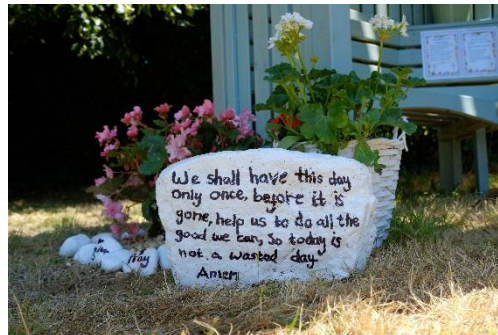 We shall have this day
only once, before it is
gone, help us to do all the
good we can, so today is
not a wasted day.
Amen
Pray